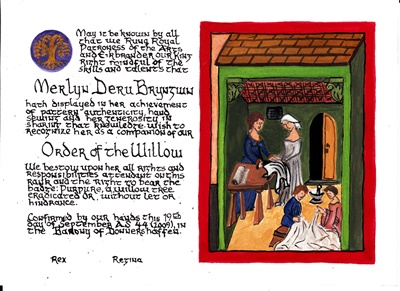 May it be known by all
that we Rung Royal
Patroness of the Arts
and Eikbrandr our king
Right mindful of the
skills and talents that
Merlyn
hath displayed in her achievement
of pattern authenticity, hand
sewing and her generosity in
sharing that knowledge wish to
recognize her as a companion of our
Order of the Willow
We bestow upon her all rights and
responsibilities attendant on this
rank and the right to bear the
badge: Purpure, a willow tree
eradicated Or, without let or
hindrance.
Confirmed by our hands this 19th
day of September A.S. 44 (2009), in
the Barony of Donnershafen.
Rex Regina